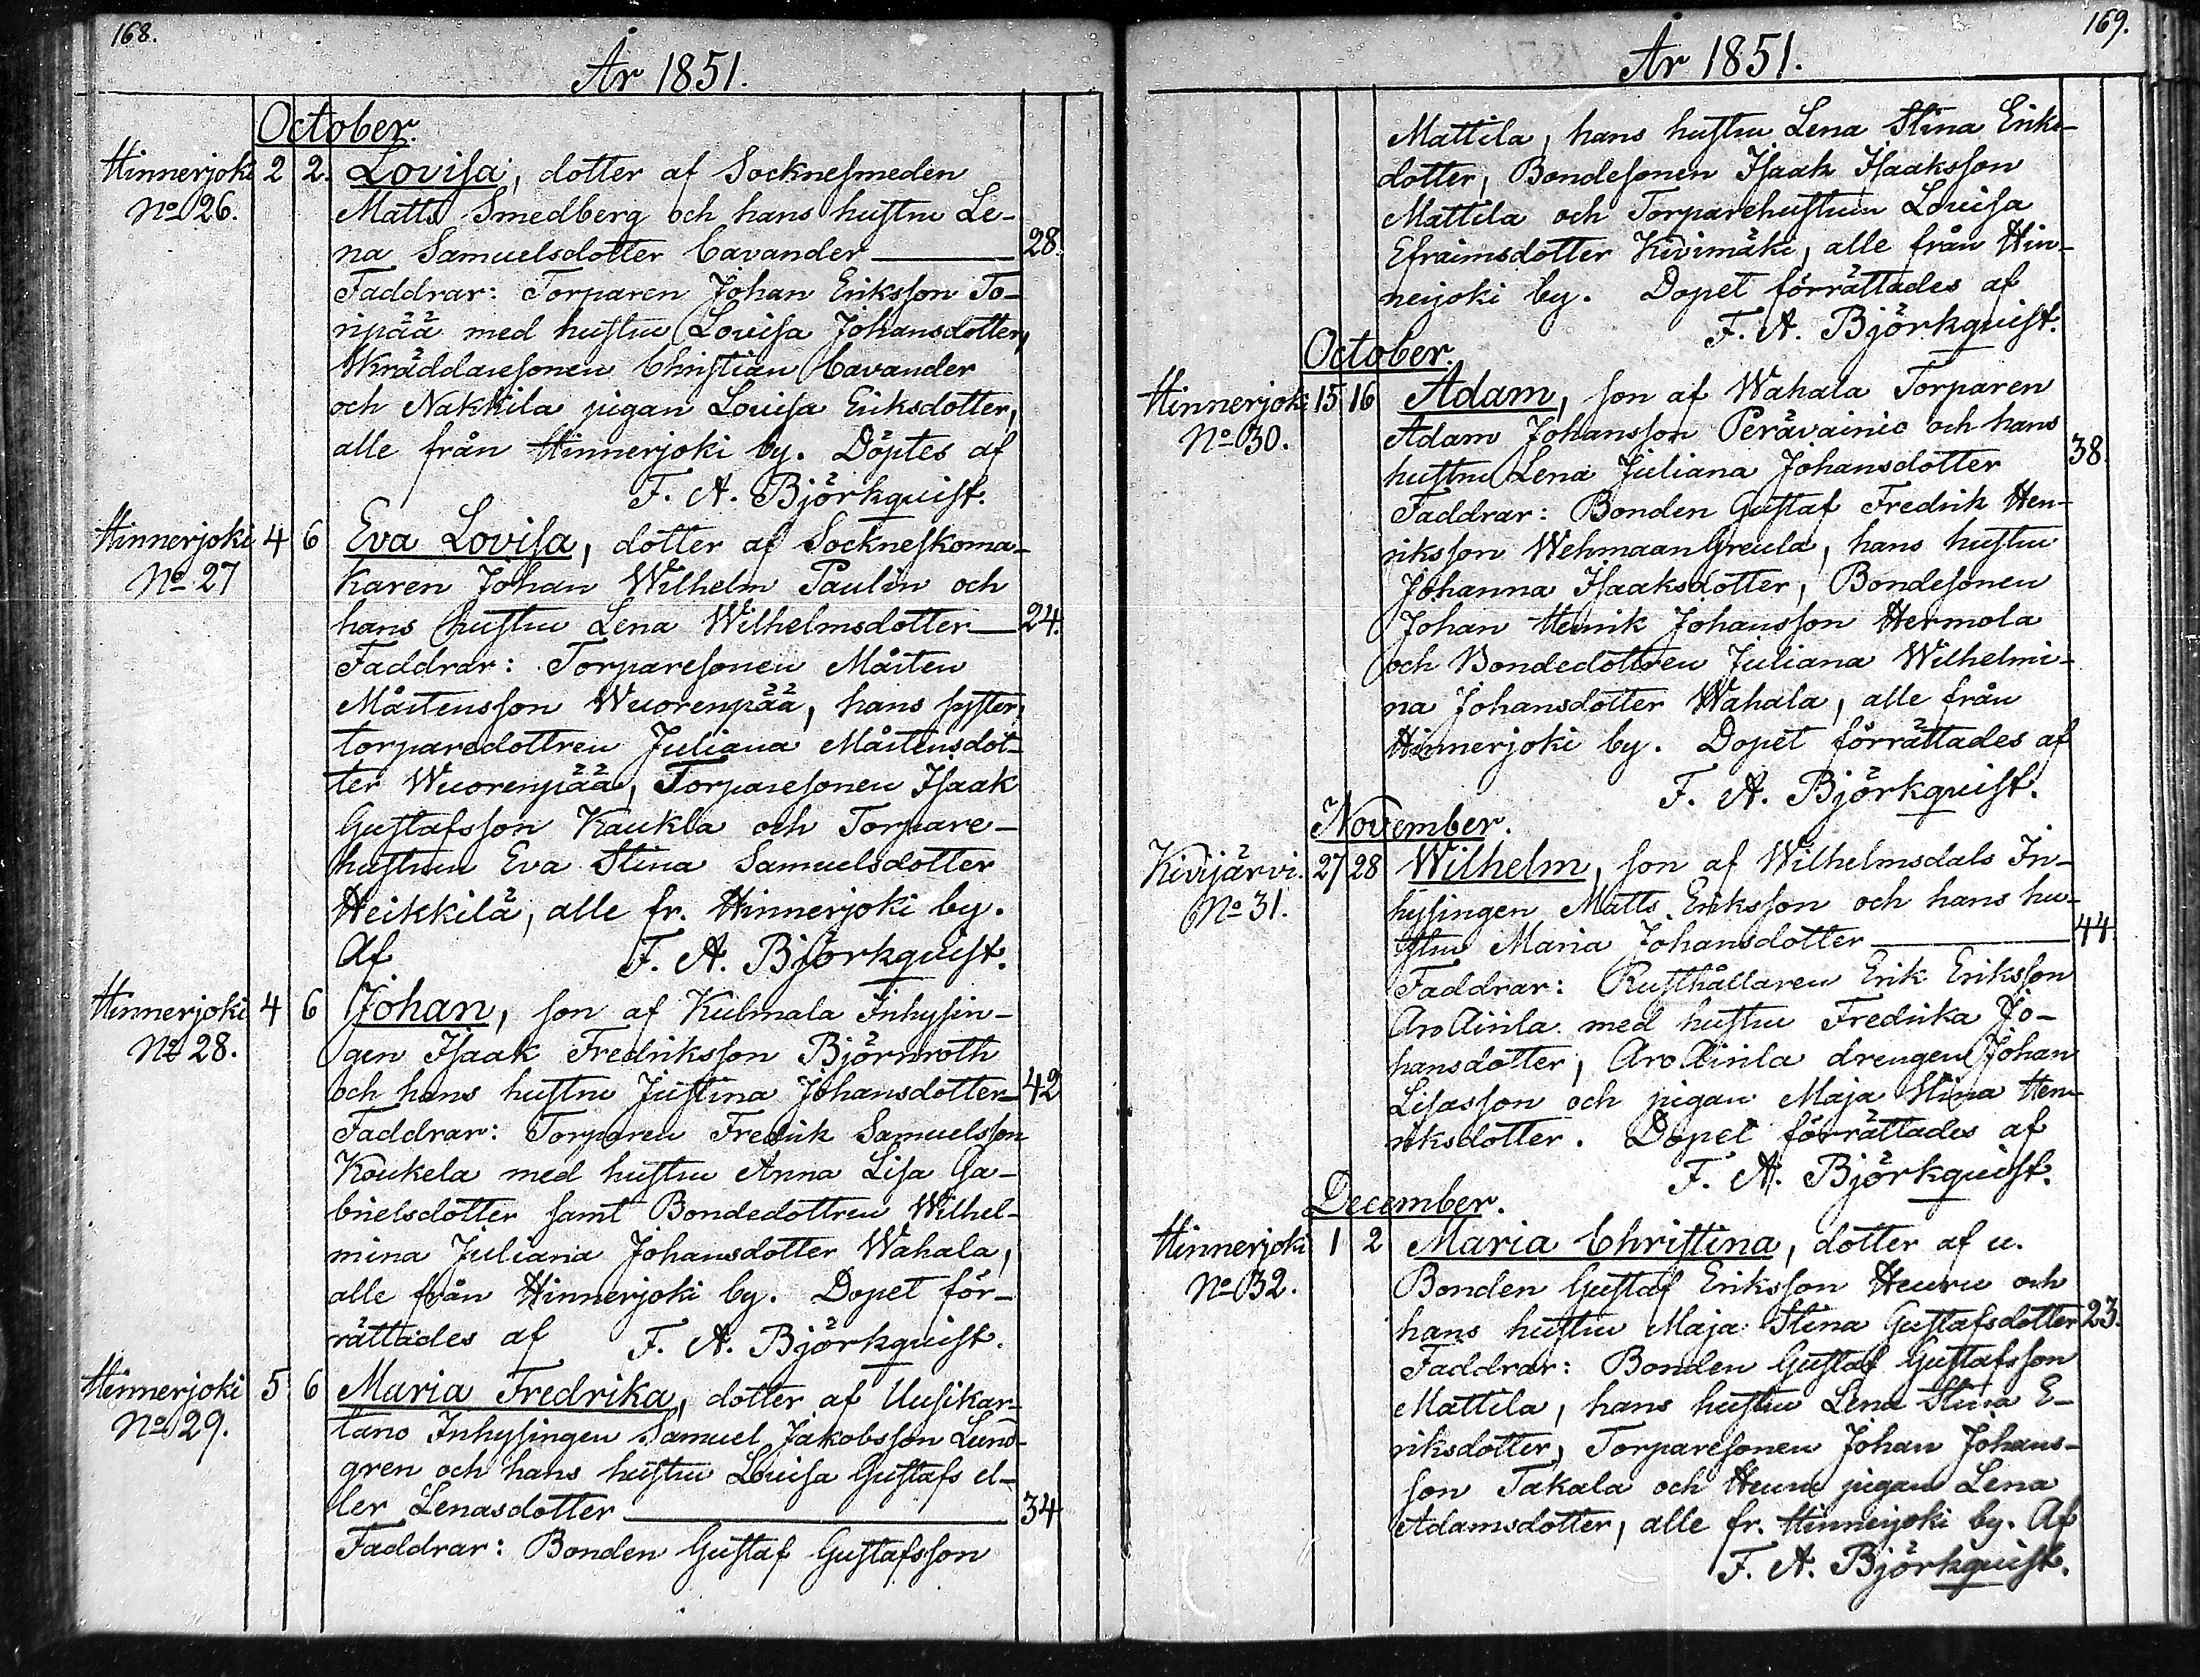 168.
År 1851.
October.
Hinnerjoki 2 2. Lovisa, dotter af Socknesmeden
No 26. Matts Smedberg och hans hustru Le-
na Samuelsdotter Cavander — 28.
Faddrar: Torparen Johan Eriksson To-
ripää med hustru Lovisa Johansdotter,
Skräddaresonen Christian Cavander
och Nakkila pigan Lovisa Eriksdotter,
alle från Hinnerjoki by. Döptes af
F. A. Björkquist.
Hinnerjoki 4 6 Eva Lovisa, dotter af Sockneskoma-
No 27 karen Johan Wilhelm Paulin och
hans hustru Lena Wilhelmsdotter — 24.
Faddrar: Torparesonen Mårten
Mårtensson Wuorenpää, hans syster,
torparedottren Juliana Mårtensdot-
ter Wuorenpää, Torparesonen Isaak
Gustafsson Kaukla och Torpare-
hustrun Eva Stina Samuelsdotter
Heikkilä, alle fr. Hinnerjoki by.
Af F. A. Björkquist.
Hinnerjoki 4 6 Johan, son af Kulmala Inhysin-
No 28. gen Isaak Fredriksson Björnroth
och hans hustru Justina Johansdotter — 42
Faddrar: Torparen Fredrik Samuelsson
Koukela med hustru Anna Lisa Ga-
brielsdotter samt Bondedottren Wilhel-
mina Juliana Johansdotter Wahala,
alle från Hinnerjoki by. Dopet för-
rättades af F. A. Björkquist.
Hinnerjoki 5 6 Maria Fredrika, dotter af Uusikar-
No 29. tano Inhysingen Samuel Jakobsson Lund-
gren och hans hustru Lovisa Gustafs el-
ler Lenasdotter — 34
Faddrar: Bonden Gustaf Gustafsson
169.
År 1851.
Mattila, hans hustru Lena Stina Eriks-
dotter, Bondesonen Isaak Isaaksson
Mattila och Torparehustrun Lovisa
Efraimsdotter Kivimäki, alle från Hin-
nerjoki by. Dopet förrättades af
F. A. Björkquist.
October.
Hinnerjoki 15 16 Adam, son af Wahala Torparen
No 30. Adam Johansson Perävainio och hans
hustru Lena Juliana Johansdotter 38.
Faddrar: Bonden Gustaf Fredrik Hen-
riksson Wehmaan Greula, hans hustru
Johanna Isaaksdotter, Bondesonen
Johan Henrik Johansson Hermola
och Bondedottren Juliana Wilhelmi-
na Johansdotter Wahala, alle från
Hinnerjoki by. Dopet förrättades af
F. A. Björkquist.
November.
Kivijärvi. 27 28 Wilhelm, son af Wilhelmsdals In-
No 31. hysingen Matts Eriksson och hans hu-
stru Maria Johansdotter — 44.
Faddrar: Rusthållaren Erik Eriksson
Aro Äirila med hustru Fredrika Jo-
hansdotter, Aro Äirila drengen Johan
Lisasson och pigan Maja Stina Hen-
riksdotter. Dopet förrättades af
F. A. Björkquist.
December.
Hinnerjoki 1 2 Maria Christina, dotter af u.
No 32. Bonden Gustaf Eriksson Heuru och
hans hustru Maja Stina Gustafsdotter 23.
Faddrar: Bonden Gustaf Gustafsson
Mattila, hans hustru Lena Stina E-
riksdotter, Torparesonen Johan Johans-
son Takala och Heuru pigan Lena
Adamsdotter, alle fr. Hinnerjoki by. Af
F. A. Björkquist.